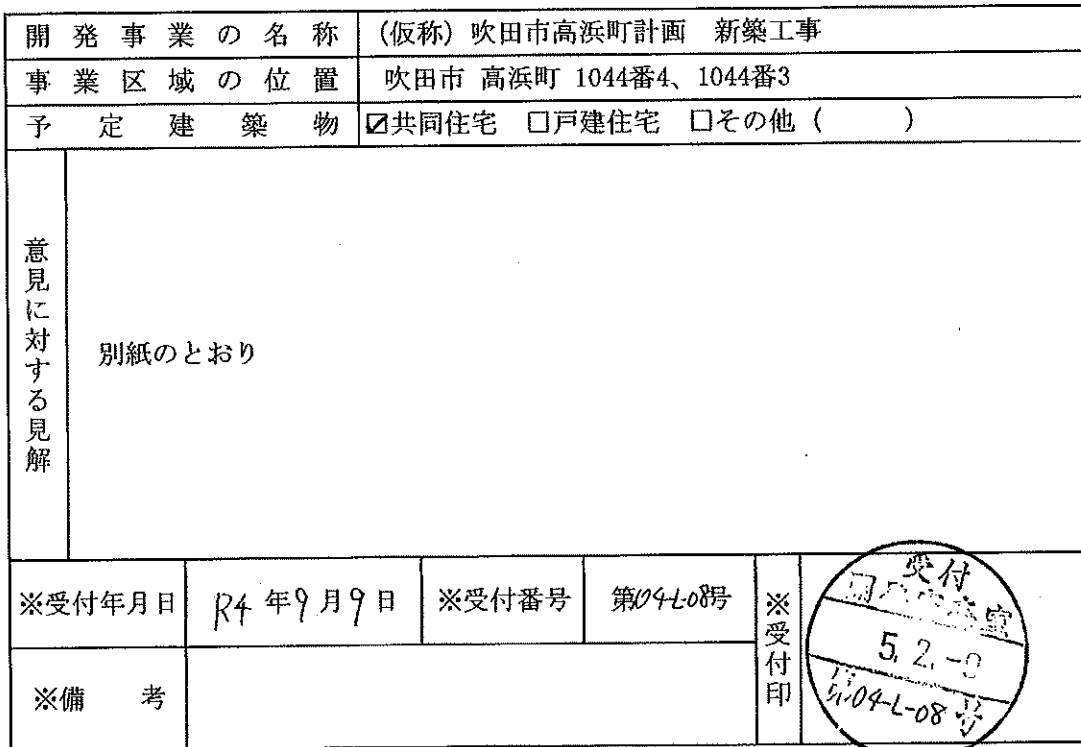 開発事業の名称 (仮称) 吹田市高浜町計画 新築工事
事業区域の位置 吹田市 高浜町 1044番4、1044番3
予定建築物 ☑共同住宅 □戸建住宅 □その他 ( )
意見に対する見解
別紙のとおり
※受付年月日 R4年9月9日 ※受付番号 第04-L-08号
※受付印
受付
5.2.-9
第04-L-08号
※備 考